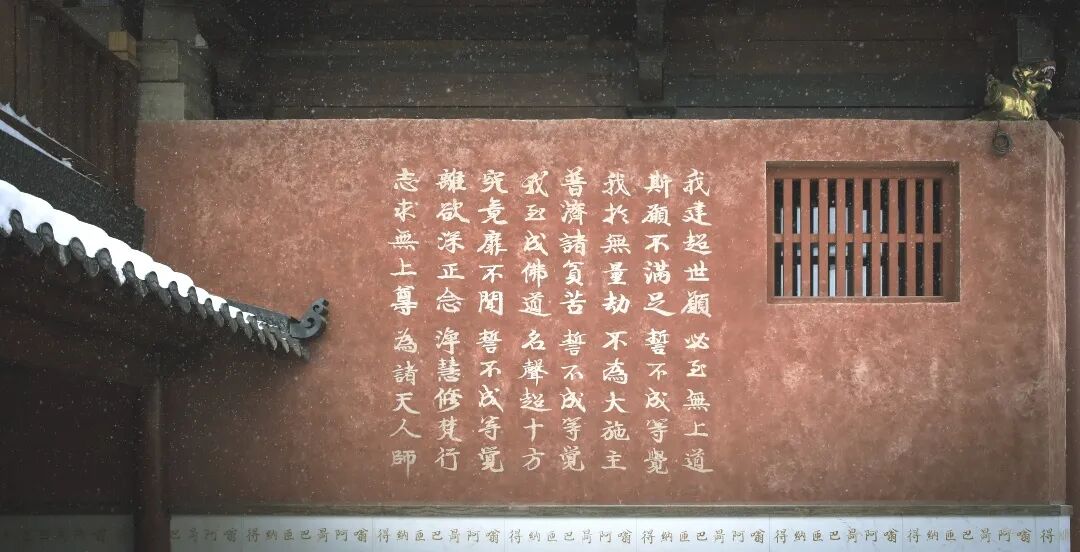 我建超世願 必至無上道
斯願不滿足 誓不成等覺
我於無量劫 不為大施主
普濟諸貧苦 誓不成等覺
我至成佛道 名聲超十方
究竟靡不聞 誓不成等覺
離欲深正念 淨慧修梵行
志求無上尊 為諸天人師
得 嗡阿巴匝納得 嗡阿巴匝納得 嗡阿巴匝納得 嗡阿巴匝納得 嗡阿巴匝納得 嗡阿巴匝納得 嗡阿巴